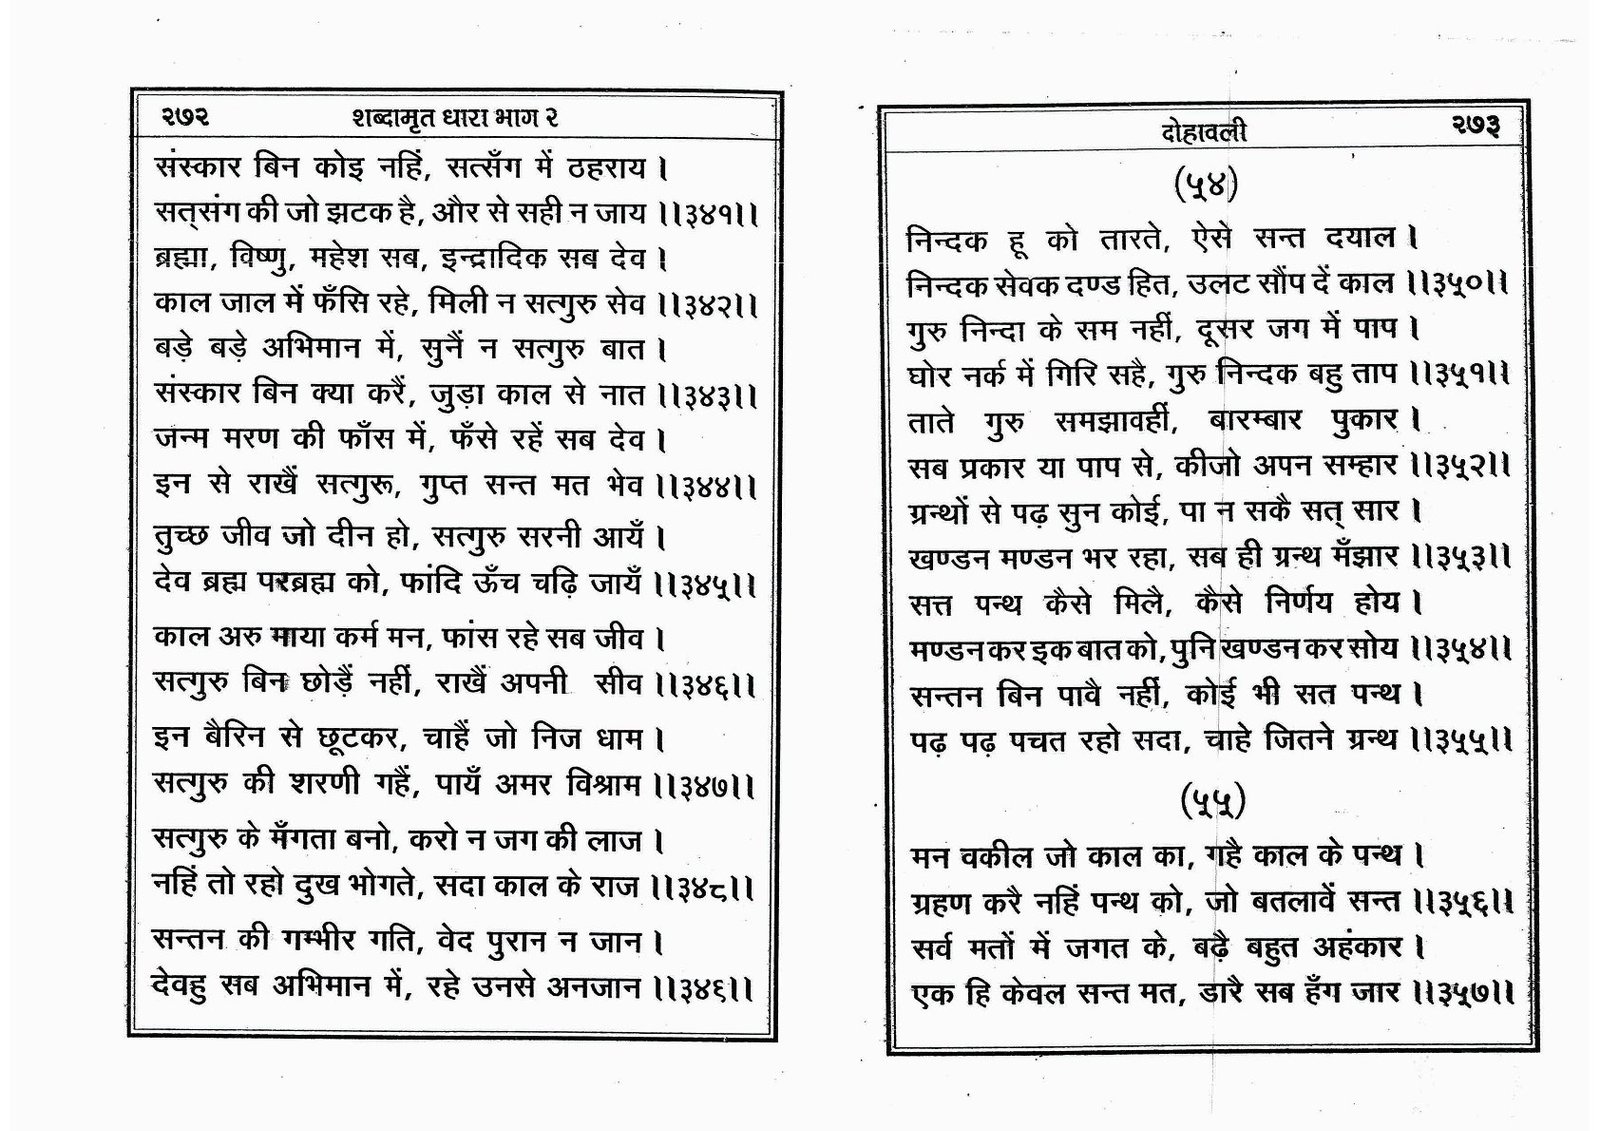 २७२ शब्दामृत धारा भाग २
संस्कार बिन कोइ नहिं, सत्सँग में ठहराय ।
सत्‌संग की जो झटक है, और से सही न जाय ।।३४१।।
ब्रह्मा, विष्णु, महेश सब, इन्द्रादिक सब देव ।
काल जाल में फँसि रहे, मिली न सत्गुरु सेव ।।३४२।।
बड़े बड़े अभिमान में, सुनैं न सत्गुरु बात ।
संस्कार बिन क्या करैं, जुड़ा काल से नात ।।३४३।।
जन्म मरण की फाँस में, फँसे रहें सब देव ।
इन से राखैं सत्गुरू, गुप्त सन्त मत भेव ।।३४४।।
तुच्छ जीव जो दीन हो, सत्गुरु सरनी आयँ ।
देव ब्रह्म परब्रह्म को, फांदि ऊँच चढ़ि जायँ ।।३४५।।
काल अरु माया कर्म मन, फांस रहे सब जीव ।
सत्गुरु बिन छोड़ैं नहीं, राखैं अपनी सीव ।।३४६।।
इन बैरिन से छूटकर, चाहैं जो निज धाम ।
सत्गुरु की शरणी गहैं, पायँ अमर विश्राम ।।३४७।।
सत्गुरु के मँगता बनो, करो न जग की लाज ।
नहिं तो रहो दुख भोगते, सदा काल के राज ।।३४८।।
सन्तन की गम्भीर गति, वेद पुरान न जान ।
देवहु सब अभिमान में, रहे उनसे अनजान ।।३४९।।
दोहावली २७३
(५४)
निन्दक हू को तारते, ऐसे सन्त दयाल ।
निन्दक सेवक दण्ड हित, उलट सौंप दें काल ।।३५०।।
गुरु निन्दा के सम नहीं, दूसर जग में पाप ।
घोर नर्क में गिरि सहै, गुरु निन्दक बहु ताप ।।३५१।।
ताते गुरु समझावहीं, बारम्बार पुकार ।
सब प्रकार या पाप से, कीजो अपन सम्हार ।।३५२।।
ग्रन्थों से पढ़ सुन कोई, पा न सकै सत् सार ।
खण्डन मण्डन भर रहा, सब ही ग्रन्थ मँझार ।।३५३।।
सत्त पन्थ कैसे मिलै, कैसे निर्णय होय ।
मण्डन कर इक बात को, पुनि खण्डन कर सोय ।।३५४।।
सन्तन बिन पावै नहीं, कोई भी सत पन्थ ।
पढ़ पढ़ पचत रहो सदा, चाहे जितने ग्रन्थ ।।३५५।।
(५५)
मन वकील जो काल का, गहै काल के पन्थ ।
ग्रहण करै नहिं पन्थ को, जो बतलावें सन्त ।।३५६।।
सर्व मतों में जगत के, बढ़ै बहुत अहंकार ।
एक हि केवल सन्त मत, डारै सब हँग जार ।।३५७।।